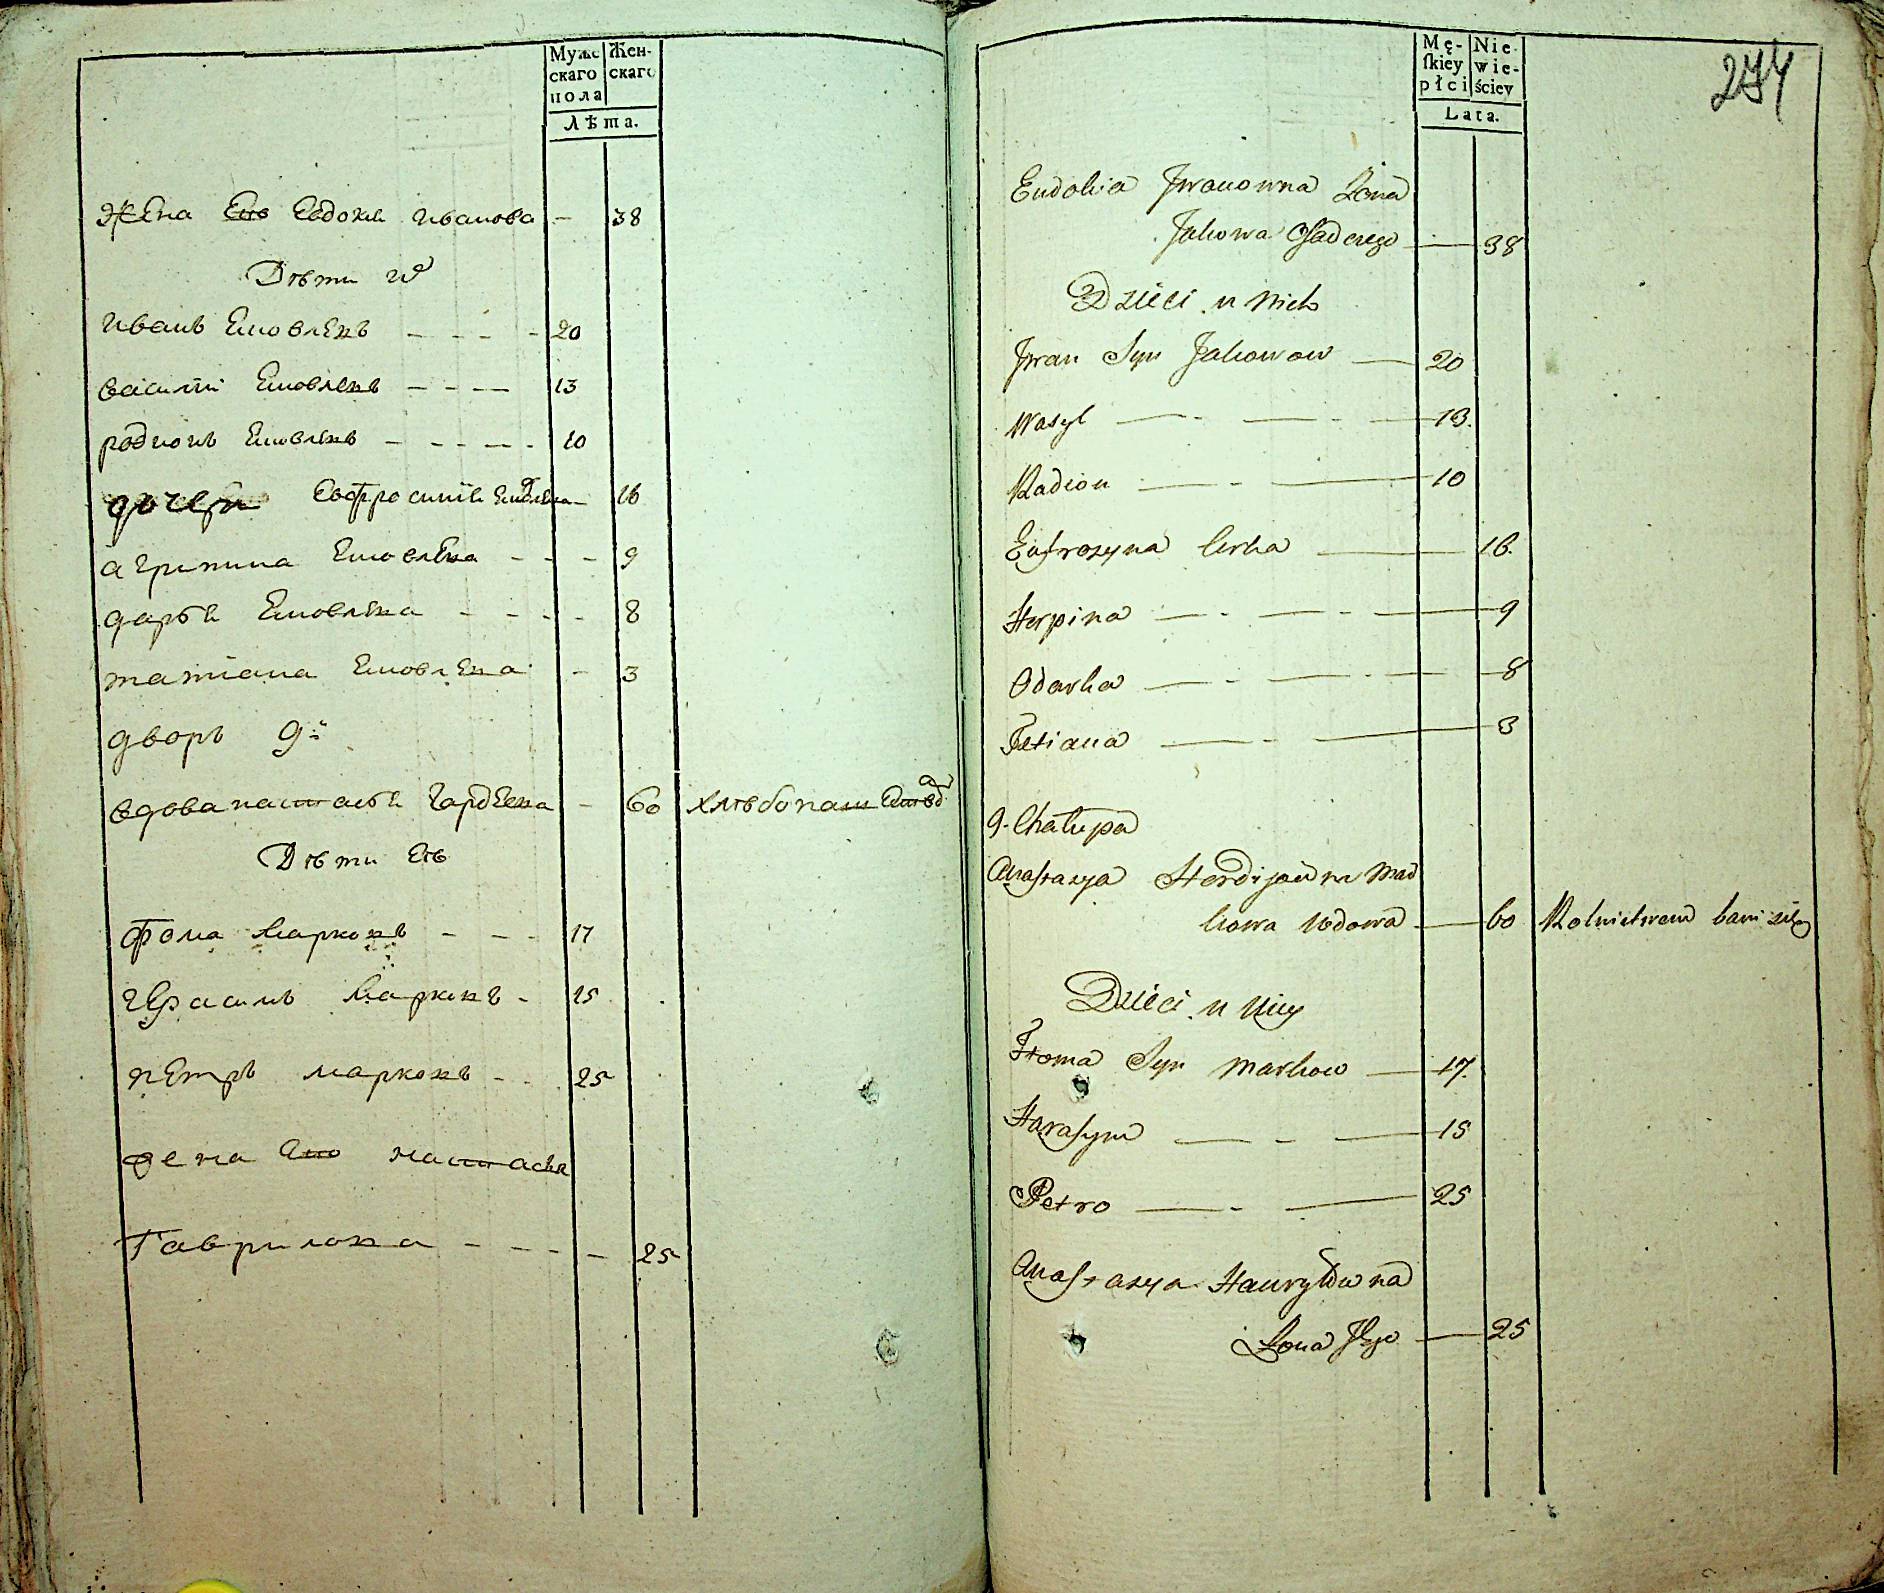 Мужс Жен-
скаго скаго
пола
Лѣта.
Жена Его Евдокия иванова — 38
Дѣти
иванъ Еиовлевъ — — — — 20
василий Еиовлевъ — — — — 13
родионъ Еиовлевъ — — — — — 10
дочери Евфросиния 16
агрипина Еиовлева — — — 9
дарья Еиовлева — — — — 8
татиана Еиовлева — 3
дворъ 9й
вдова настасья — 60 хлѣбопаш
Дѣти Еѣ
Фома Марковъ — — — 17
герасимъ Марковъ — 15
петръ марковъ — — 25
жена Его настасья
Гаврилова — — — — — 25
Mę- Nie-
ſkiey wie-
płci ściey
Lata.
274
Eudokia Jwanowna Żona
Jakowa — 38
Dzieci u nich
Jwan Syn Jakowow — 20
Wasyl — - — - — 13.
Radion — - — 10
Eufrozyna Corka — 16.
Herpina — - — - — 9
Odarka — - — - — 8
Tatiana — - — 3
9. Chałupa
Anastazya
Wdowa — 60 Rolnictwem bawi się
Dzieci u niey
Thoma Syn Markow — 17.
Harasym — - — 15
Petro — - — 25
Anastazya Hauryłowna
Żona Jego — 25